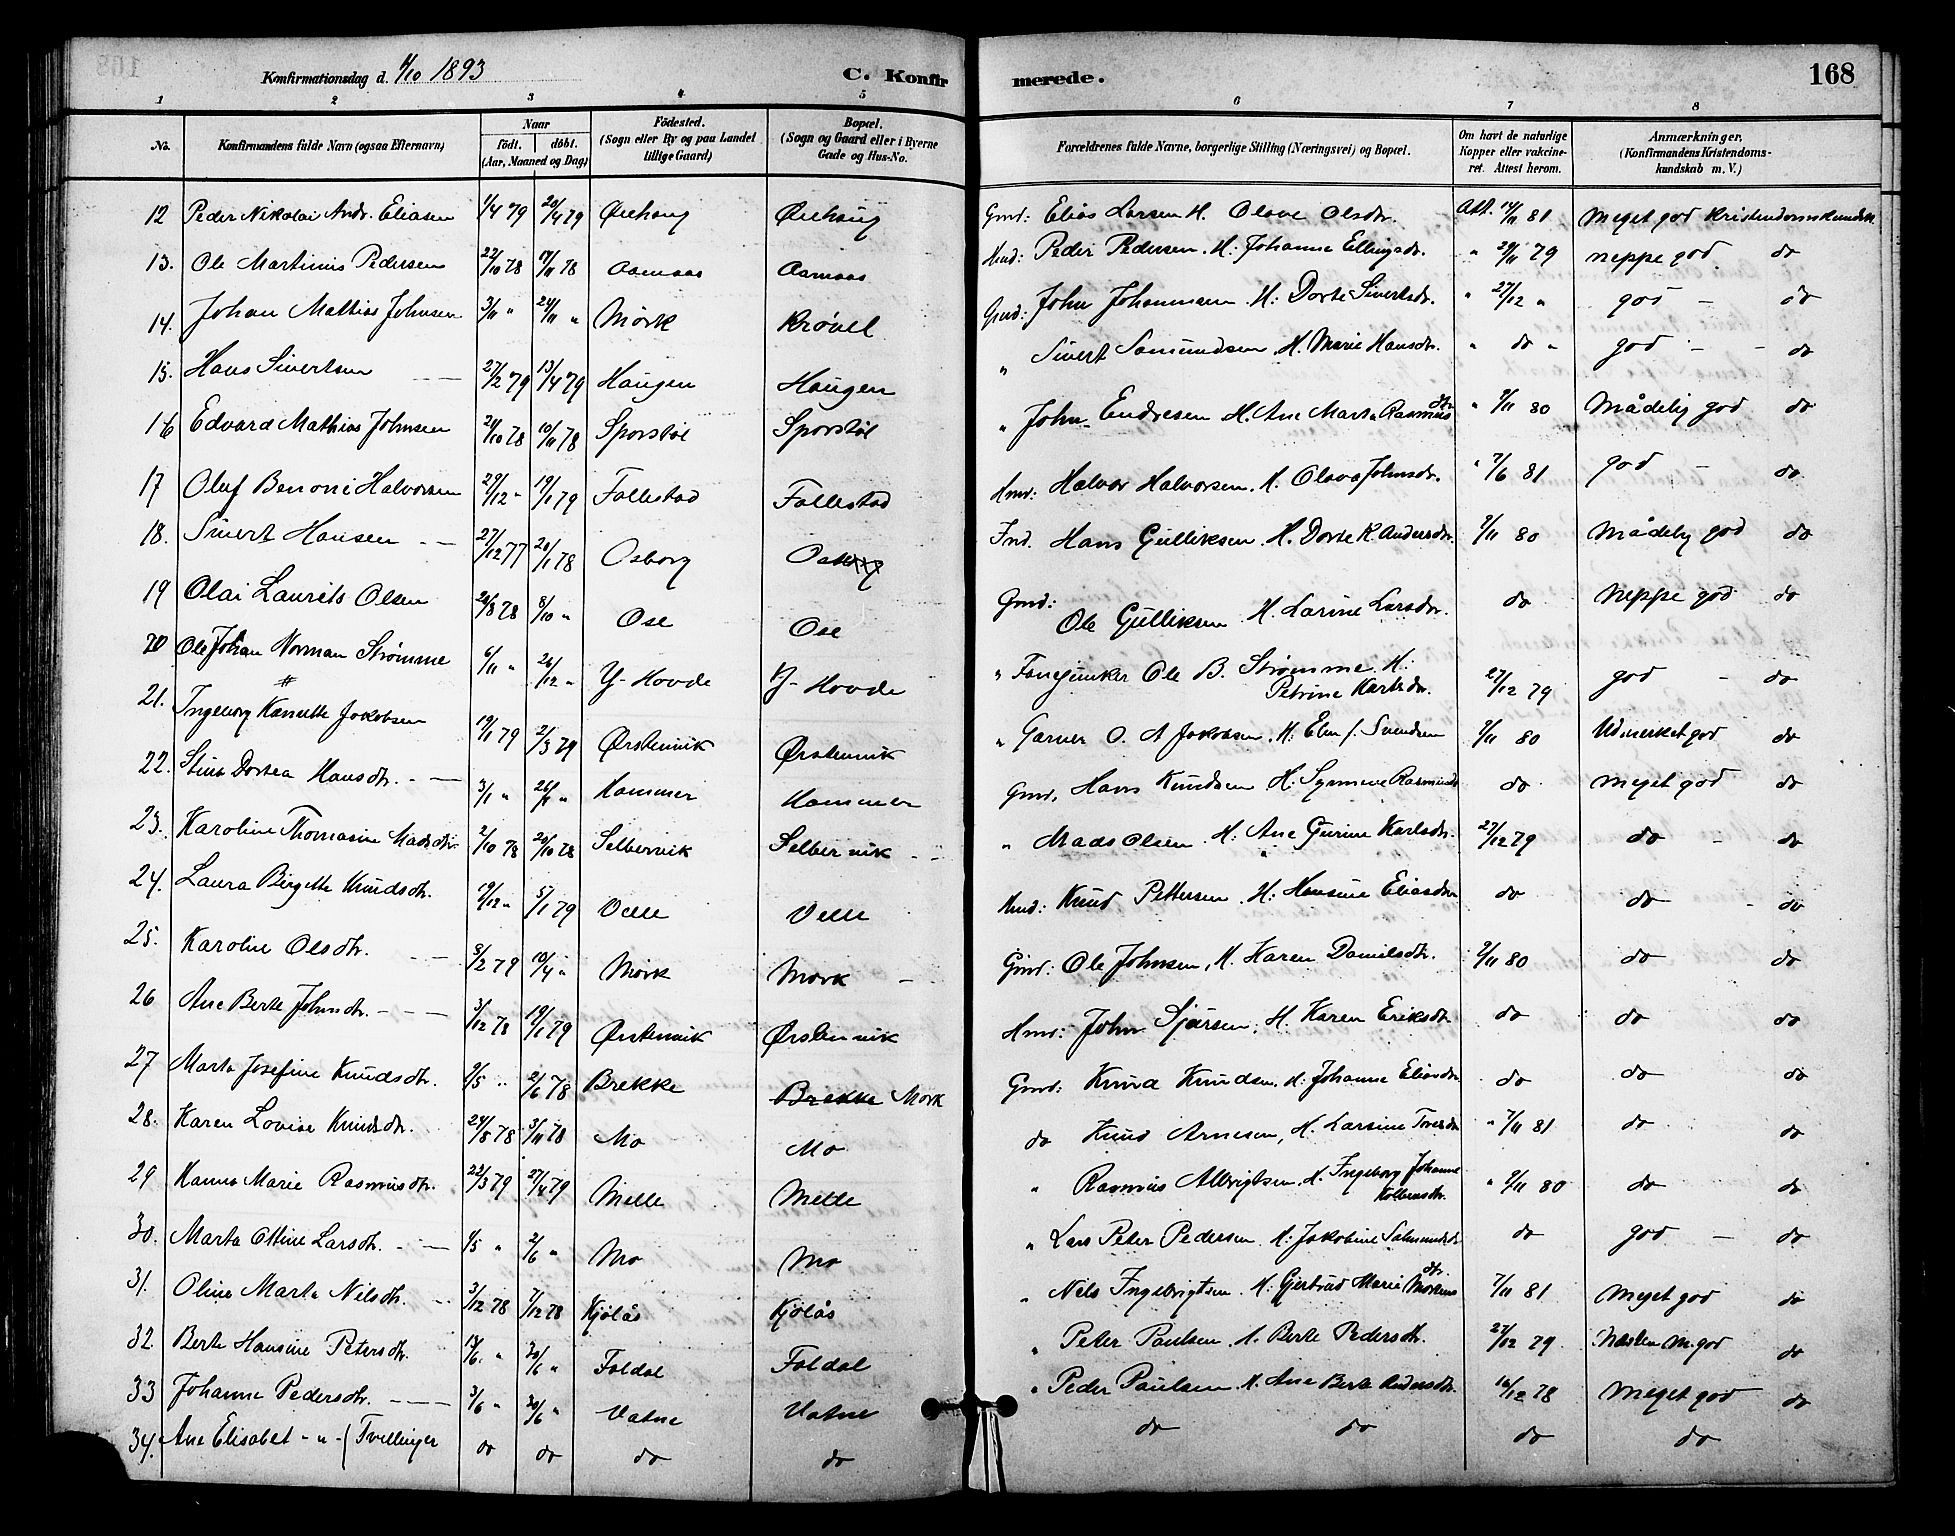 Konfirmationsdag d. 1/10 1893
C. Konfirmerede.
168
1 2 3 4 5 6 7 8
No. Konfirmandens fulde Navn (ogsaa Efternavn)
Naar födt. döbt. (Aar, Maaned og Dag)
Födested. (Sogn eller By og paa Landet tillige Gaard)
Bopæl. (Sogn og Gaard eller i Byerne Gade og Hus-No.
Forældrenes fulde Navne, borgerlige Stilling (Næringsvei) og Bopæl.
Om havt de naturlige Kopper eller vakcineret. Attest herom.
Anmærkninger. (Konfirmandens Kristendomskundskab m. V.)
12 Peder Nikolai Andr. Eliasen 1/4 79 20/4 79 Ørehaug Ørehaug Gmd: Elias Larsen H. Olave Olsdtr. Att. 14/11 81 Meget god Kristendomskundsk.
13. Ole Martinus Pedersen 22/10 78 17/11 78 Aamaas Aamaas Hmd: Peder Pedersen H: Johanne Ellingsdr. " 29/11 79 neppe god do
14. Johan Mathias Johnsen 3/11 " 24/11 " Mørk Krøvel Gmd: John Johannesen H: Dorte Sivertsdr. " 27/12 " god - do
15. Hans Sivertsen 27/2 79 13/4 79 Haugen Haugen " Sivert Samundsen H. Marie Hansdtr. " do " god - - do
16 Edvard Mathias Johnsen 24/10 78 10/11 78 Sporstøl Sporstøl " John Endresen H. Ane Marta Rasmusdtr " 9/11 80 Mådelig god do
17 Oluf Benoni Halvorsen 29/12 " 19/1 79 Follestad Follestad Hmd: Halvor Halvorsen H. Olava Johnsdr. " 7/6 81 god - do
18. Sivert Hansen - - 27/12 77 20/1 78 Osborg Ose Ind. Hans Gulliksen H. Dorte K. Andersdtr. 9/11 80 Mådelig god do
19 Olai Laurits Olsen 26/8 78 8/10 " Ose Ose Gmd: Ole Gulliksen H. Larine Larsdr. do Neppe god do
20 Ole Johan Norman Strømme 6/11 " 26/12 " Y-Hovde Y-Hovde " Fanejunker Ole B. Strømme H: Petrine Karlsdr. 27/12 79 god - do
21. Ingeborg Kanutte Jakobsen 19/1 79 2/3 79 Ørstenvik Ørstenvik " Garver O. A Jakobsen H: Elen f. Svendsen 9/11 80 Udmerket god do
22. Stina Dortea Hansdtr. - - 3/1 " 26/1 " Hammer Hammer Gmd. Hans Knudsen H: Synneve Rasmusdr do Meget god do
23. Karoline Thomasine Madsdtr 2/10 78 20/10 78 Selbervik Selbervik " Mads Olsen H: Ane Gurine Karlsdtr. 27/12 79 do - do
24. Laura Birgitte Knudsdtr. 19/12 " 5/1 79 Velle Velle Hmd: Knud Pettersen H: Hansine Eliasdtr do do - do
25. Karoline Olsdtr. 8/2 79 10/4 " Mork Mork Gmd: Ole Johnsen, H. Karen Danielsdtr. 9/11 80 do do
26 Ane Berte Johnsdtr. - - - 3/12 78 19/1 79 Ørstenvik Ørstenvik Hmd: John Sjursen, H. Karen Eriksdtr do do do
27 Marta Josefine Knudsdtr. 9/5 " 2/6 78 Brekke Brekke Mork Gmd: Knud Knudsen H. Johanne Eliasdtr do do do
28. Karen Lovise Knudsdtr. 24/8 78 3/11 78 Mo Mo do Knud Arnesen, H. Larsine Toresdtr " 7/11 81 do do
29 Hanna Marie Rasmusdtr. 22/3 79 27/4 79 Melle Melle " Rasmus Albrigtsen H. Ingeborg Johanne Kolbensdtr. " 9/11 80 do do
30. Marta Oline Larsdtr. - - 9/5 " 2/6 " Mo Mo " Lars Peter Pedersen H: Jakobine Salmundsdr do god - do
31. Oline Marta Nilsdtr. 3/12 78 7/12 78 Kjølås Kjølås " Nils Ingebrigtsen H: Gjertrud Marie dtr. 7/11 81 Meget god do
32. Berte Hansine Petersdtr. 14/6 " 30/6 " Foldal Foldal " Peter Paulsen H. Berte Pedersdtr. 27/12 79 Næsten M. god do
33 Johanne Pedersdtr. - - - 3/6 " 30/6 " Vatne Vatne " Peder Paulsen H. Ane Berte Andersdtr. 16/12 78 Meget god do
34. Ane Elisabet - " - (Tvillinger do do do do do do do do